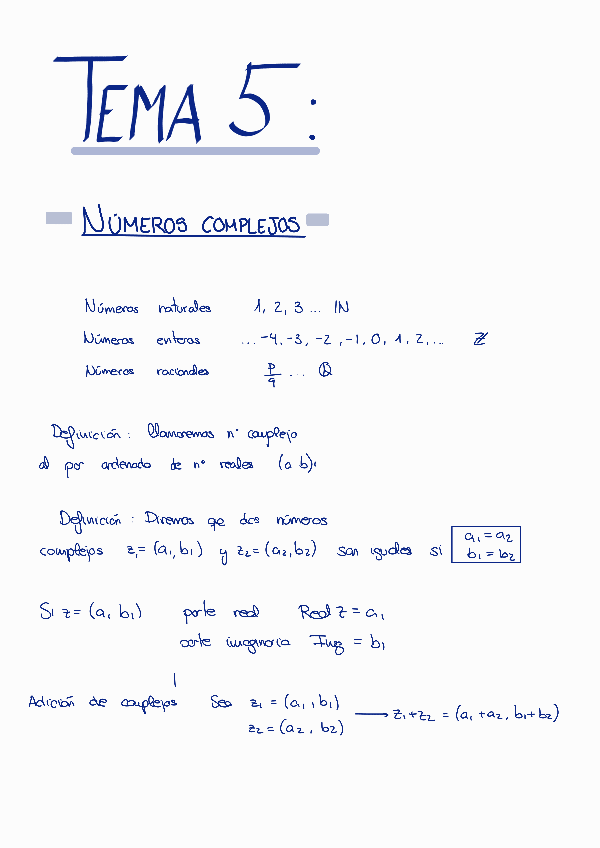 TEMA 5:
NÚMEROS COMPLEJOS
Números naturales 1, 2, 3 ... ℕ
Números enteros ... -4, -3, -2, -1, 0, 1, 2, ... ℤ
Números racionales p/q ... ℚ
Definición: Llamaremos nº complejo
al par ordenado de nº reales (a b).
Definición: Diremos qe dos números
complejos z₁ = (a₁, b₁) y z₂ = (a₂, b₂) son iguales si a₁ = a₂
b₁ = b₂
Si z = (a, b₁) parte real Real z = a₁
parte imaginaria Imz = b₁
Adición de complejos Sea z₁ = (a₁, b₁) → z₁+z₂ = (a₁+a₂, b₁+b₂)
z₂ = (a₂, b₂)